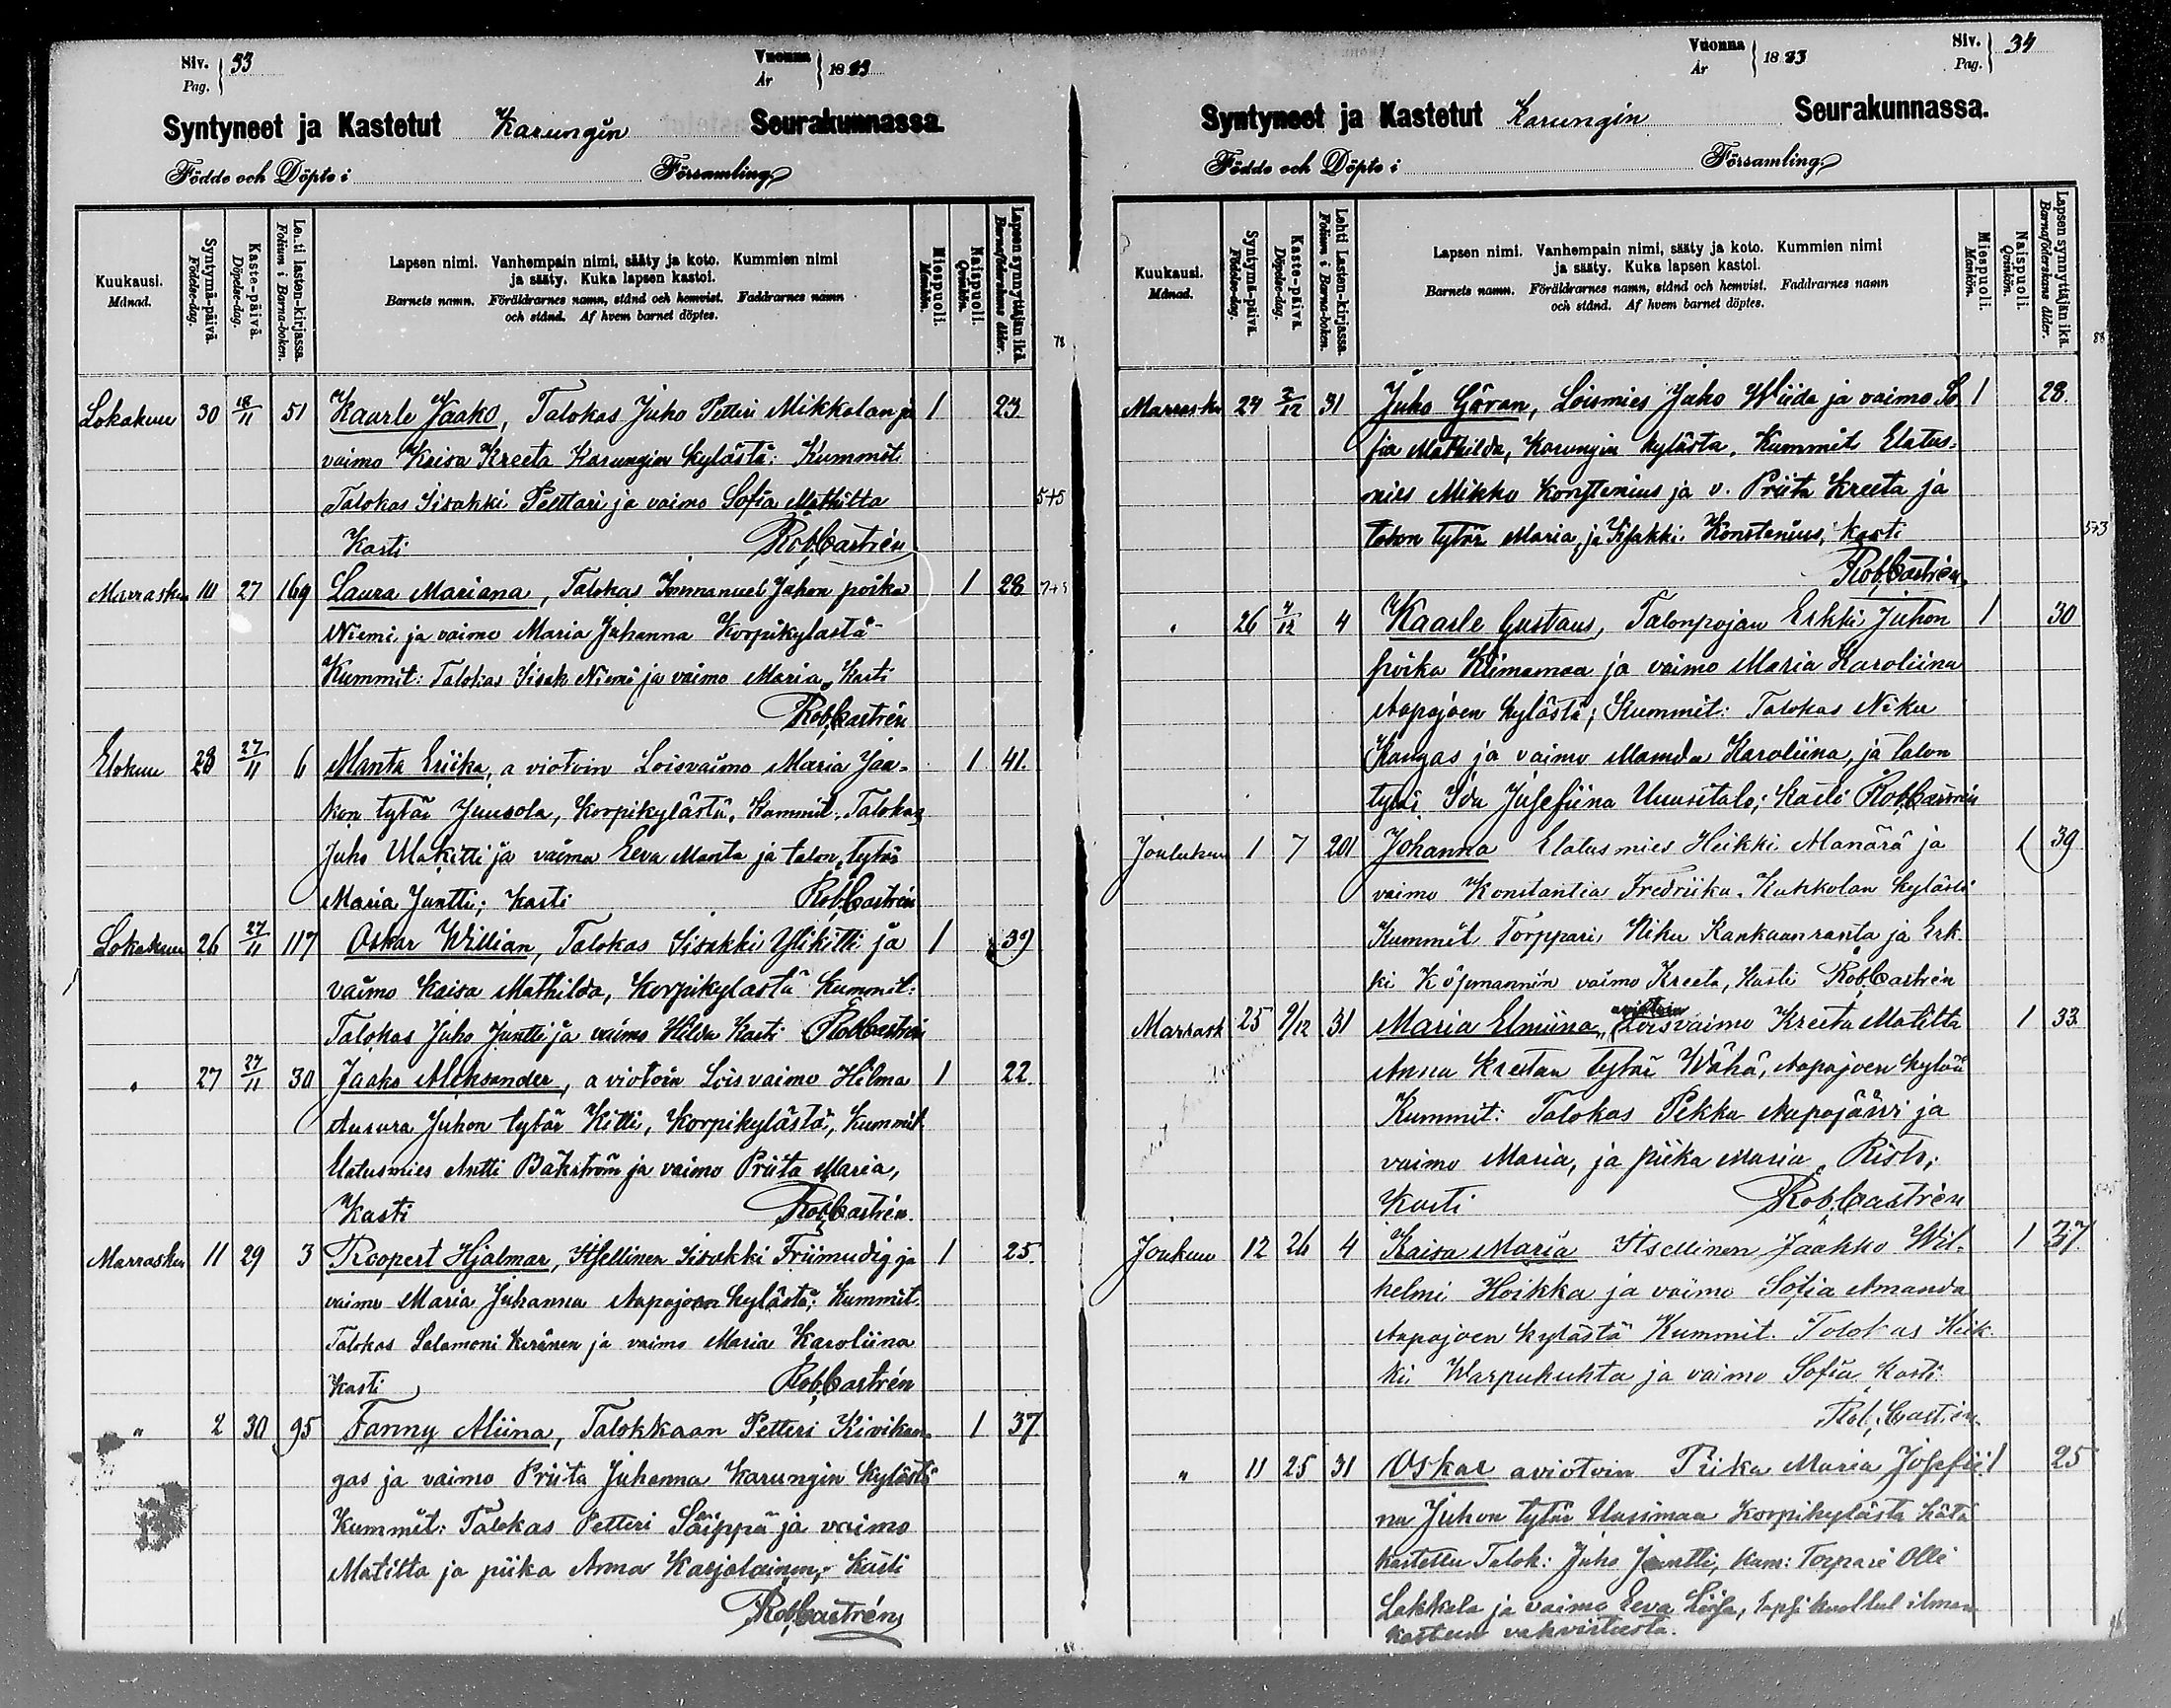 Siv. 33
Pag.
Vuonna 1883
År
Syntyneet ja Kastetut Karungin Seurakunnassa.
Födde och Döpte i Församling
Kuukausi.
Månad.
Syntymä-päivä.
Födelse-dag.
Kaste-päivä.
Döpelse-dag.
Lehti lasten-kirjassa.
Folium i Barna-boken.
Lapsen nimi. Vanhempain nimi, sääty ja koto. Kummien nimi
ja sääty. Kuka lapsen kastoi.
Barnets namn. Föräldrarnes namn, stånd och hemvist. Faddrarnes namn
och stånd. Af hvem barnet döptes.
Miespuoli.
Mankön.
Naispuoli.
Qvinkön.
Lapsen synnyttäjän ikä.
Barnaföderskans ålder.
78
Lokakuu 30 18/11 51 Kaarle Jaako, Talokas Juho Petteri Mikkolan ja 1 23
vaimo Kaisa Kreeta Karungin kylästä: Kummit.
Talokas Iisakki Pelttari ja vaimo Sofia Mathilta 5+5
Kasti Rob. Castrén
Marrasku 10 27 169 Laura Mariana, Talokas Immanuel Juhon poika 1 28 7+5
Niemi ja vaimo Maria Johanna Korpikylästä
Kummit: Talokas Iisak Niemi ja vaimo Maria, Kasti
Rob. Castrén
Elokuu 28 27/11 6 Manta Eriika, a viotoin Loisvaimo Maria Jaa- 1 41.
kon tytär Juusola, Korpikylästä, Kummit. Talokas
Juho Ulakitti ja vaimo Eeva Manta ja talon tytär
Maria Juntti; Kasti Rob. Castrén
Lokakuu 26 27/11 117 Oskar Willian, Talokas Iisakki Ylikitti ja 1
vaimo Kaisa Mathilda, Korpikylästä Kummit:
Talokas Juho Juntti ja vaimo Hilda Kasti Rob Castrén
" 27 27/11 30 Jaako Aleksander, a viotoin Loisvaimo Hilma 1 22.
Aurora Juhon tytär Kitti, Korpikylästä, Kummit
Elatusmies Antti Bäkström ja vaimo Priita Maria,
Kasti Rob. Castrén.
Marrasku 11 29 3 Roopert Hjalmar, Itsellinen Iisakki Friimudig ja 1 25.
vaimo Maria Juhanna Aapajoen kylästä; Kummit.
Talokas Salamoni Keränen ja vaimo Maria Karoliina
Kasti Rob. Castrén
" 2 30 95 Fanny Miina, Talokkaan Petteri Kivikan- 1 37.
gas ja vaimo Priita Juhanna Karungin kylästä
Kummit: Talokas Petteri Säippä ja vaimo
Matilta ja piika Anna Karjalainen; Kasti
Rob. Castrén
Siv. 34
Pag.
Vuonna 1883
År
Syntyneet ja Kastetut Karungin Seurakunnassa.
Födde och Döpte i Församling
Kuukausi.
Månad.
Syntymä-päivä.
Födelse-dag.
Kaste-päivä.
Döpelse-dag.
Lehti Lasten-kirjassa.
Folium i Barna-boken.
Lapsen nimi. Vanhempain nimi, sääty ja koto. Kummien nimi
ja sääty. Kuka lapsen kastoi.
Barnets namn. Föräldrarnes namn, stånd och hemvist. Faddrarnes namn
och stånd. Af hvem barnet döptes.
Miespuoli.
Mankön.
Naispuoli.
Qvinkön.
Lapsen synnyttäjän ikä.
Barnaföderskans ålder.
88
Marrasku 24 2/12 31 Juho Göran, Loismies Juho Wiida ja vaimo So 1 28.
fia Mathilda, Karungin kylästa, Kummit Elatus-
mies Mikko Konstenius ja v. Priita Kreeta ja
talon tytär Maria, ja Iisakki Konstenius, kasti 5+3
Rob. Castrén.
" 26 4/12 4 Kaarle Gustaus, Talonpojan Erkki Juhon 1 30
poika Kiimamaa ja vaimo Maria Karoliina
Aapajoen kylästä; Kummit: Talokas Niku
Kangas ja vaimo Mamda Karoliina, ja talon
tytär Ida Josefiina Uuusitalo; Kasti Rob. Castrén
Joulukuu 1 7 201 Johanna Elatusmies Heikki Manärä ja 1 39
vaimo Konstantia Fredriika. Kukkolan kylästi
Kummit Torppari Niku Kankaanranta ja Erk.
ki Köjumannin vaimo Kreeta, Kasti Rob. Castrén
Marrask 25 9/12 31 Maria Elmiina, aviotoin Loisvaimo Kreeta Matilta 1 33
Anna Kreetan tytär Wähä, Aapajoen kylää
Kummit: Talokas Pekka Aapajärvi ja
vaimo Maria, ja piika Maria Risto;
Kasti Rob. Castrén
Joukuu 12 26 4 Kaisa Maria Itsellinen Jaakko Wil- 1 37.
helmi Hoikka ja vaimo Sofia Amanda
Aapajoen kylästä Kummit. Talokas Heik-
ki Warpuhuhta ja vaimo Sofia Kasti.
Rob. Castrén
" 11 25 31 Oskar aviotoin Piika Maria Josefii 1 25
na Juhon tytär Uusimaa Korpikylästa Hätä
kastettu Talok: Juho Juntti, Kum: Torpari Olli
Lakkala ja vaimo Eeva Liisa, lapsi kuollut ilman
kasteen vahvistusta.